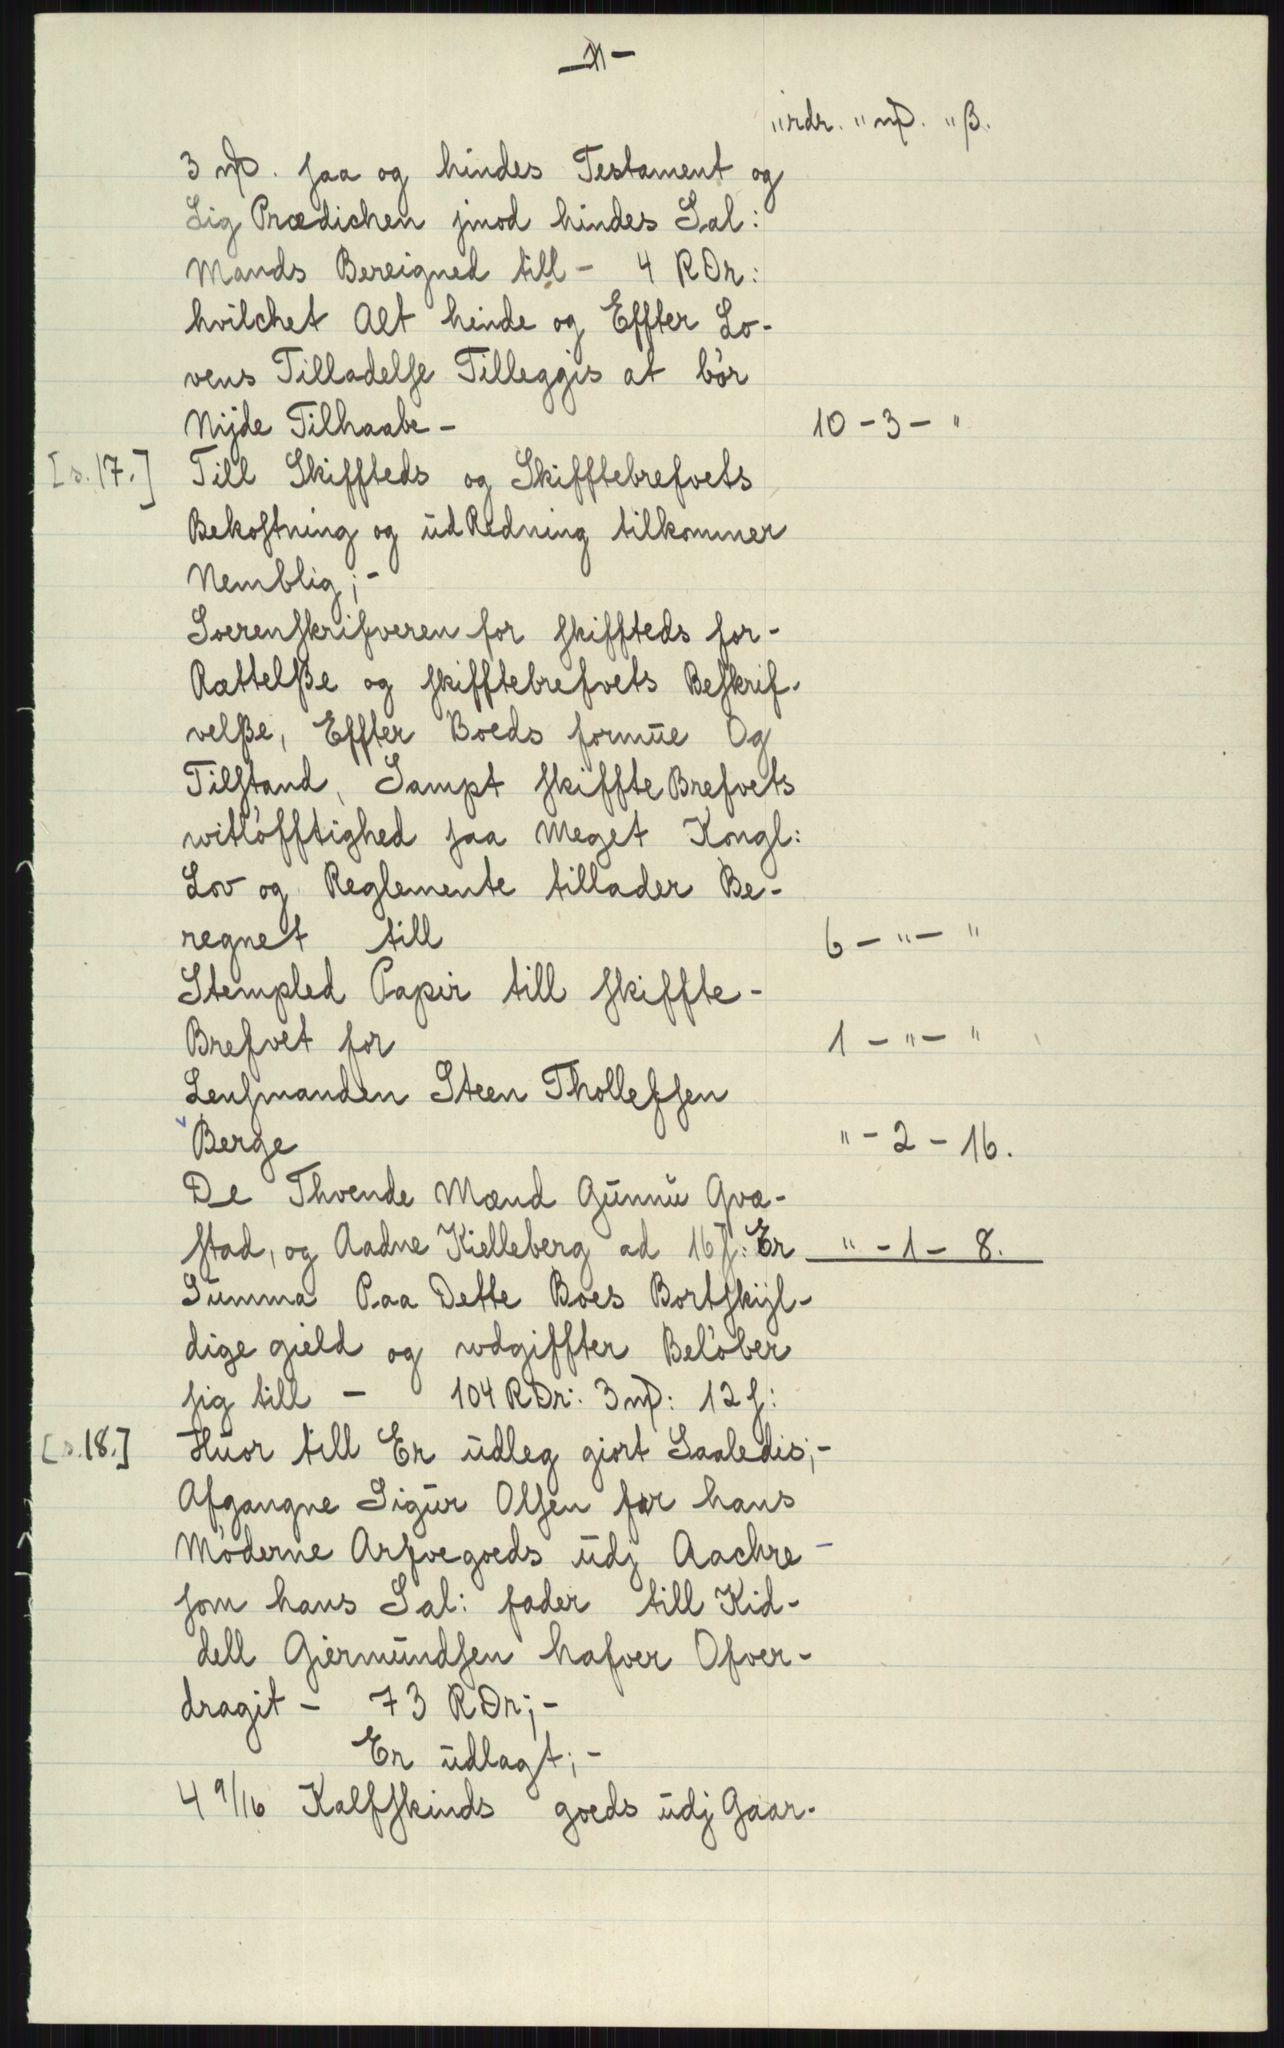 -11-
"rdr. " mƿ. " β.
3 mƿ. saa og hindes Testament og
Lig Prædichen jmod hindes Sal:
Mands Bereigned till - 4 RDr:
hvilchet Alt hende og Effter Lo-
vens Tilladelse Tilleggis at bør
Nÿde Tilhaabe - 10 - 3 - "
[s. 17.] Till Skiffteds og Skifftebrefvets
Bekostning og üdRedning tilkommer
Nemblig; -
Soerenskrifveren for skiffteds for-
Rættelße og skifftebrefvets Beskrif-
velße, Effter Boeds formüe Og
Tilstand, Sampt skiffteBrefvets
witløfftighed saa Meget Kongl:
Lov og Reglemente tillader Be-
regnet till 6 - " - "
Stempled Papir till skiffte-
Brefvet for 1 - " - "
Lensmanden Steen Thollefsen
Berge " - 2 - 16.
De Thvende Mænd Günnü Qva-
stad, og Aadne Kielleberg ad 16 s: Er " - 1 - 8.
Summa Paa Dette Boes Bortskÿl-
dige gield og wdgiffter Beløber
sig till - 104 RDr: 3 mƿ: 12 s:
[s. 18.] Hüor till Er üdleg giort Saaledis; -
Afgangne Sigür Olsen for hans
Møderne Arfvegoeds üdj Aachre -
som hans Sal: fader till Kid-
dell Giermündsen hafver Ofver-
dragit - 73 RDr; -
Er üdlagt; -
4 9/16 Kalfskinds goeds üdj Gaar-